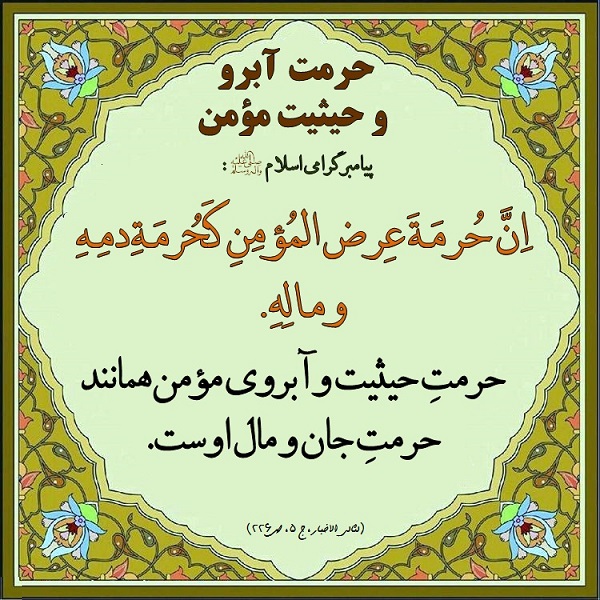 حرمت آبرو
و حیثیت مؤمن
پیامبر گرامی اسلام ﷺ :
اِنَّ حُرمَةَ عِرضِ المُؤمِنِ كَحُرمَةِ دمِهِ
و مالِهِ.
حرمتِ حیثیت و آبروی مؤمن همانند
حرمتِ جان و مال اوست.
(لئالی الاخبار، ج ۵، ص ۲۲۶)